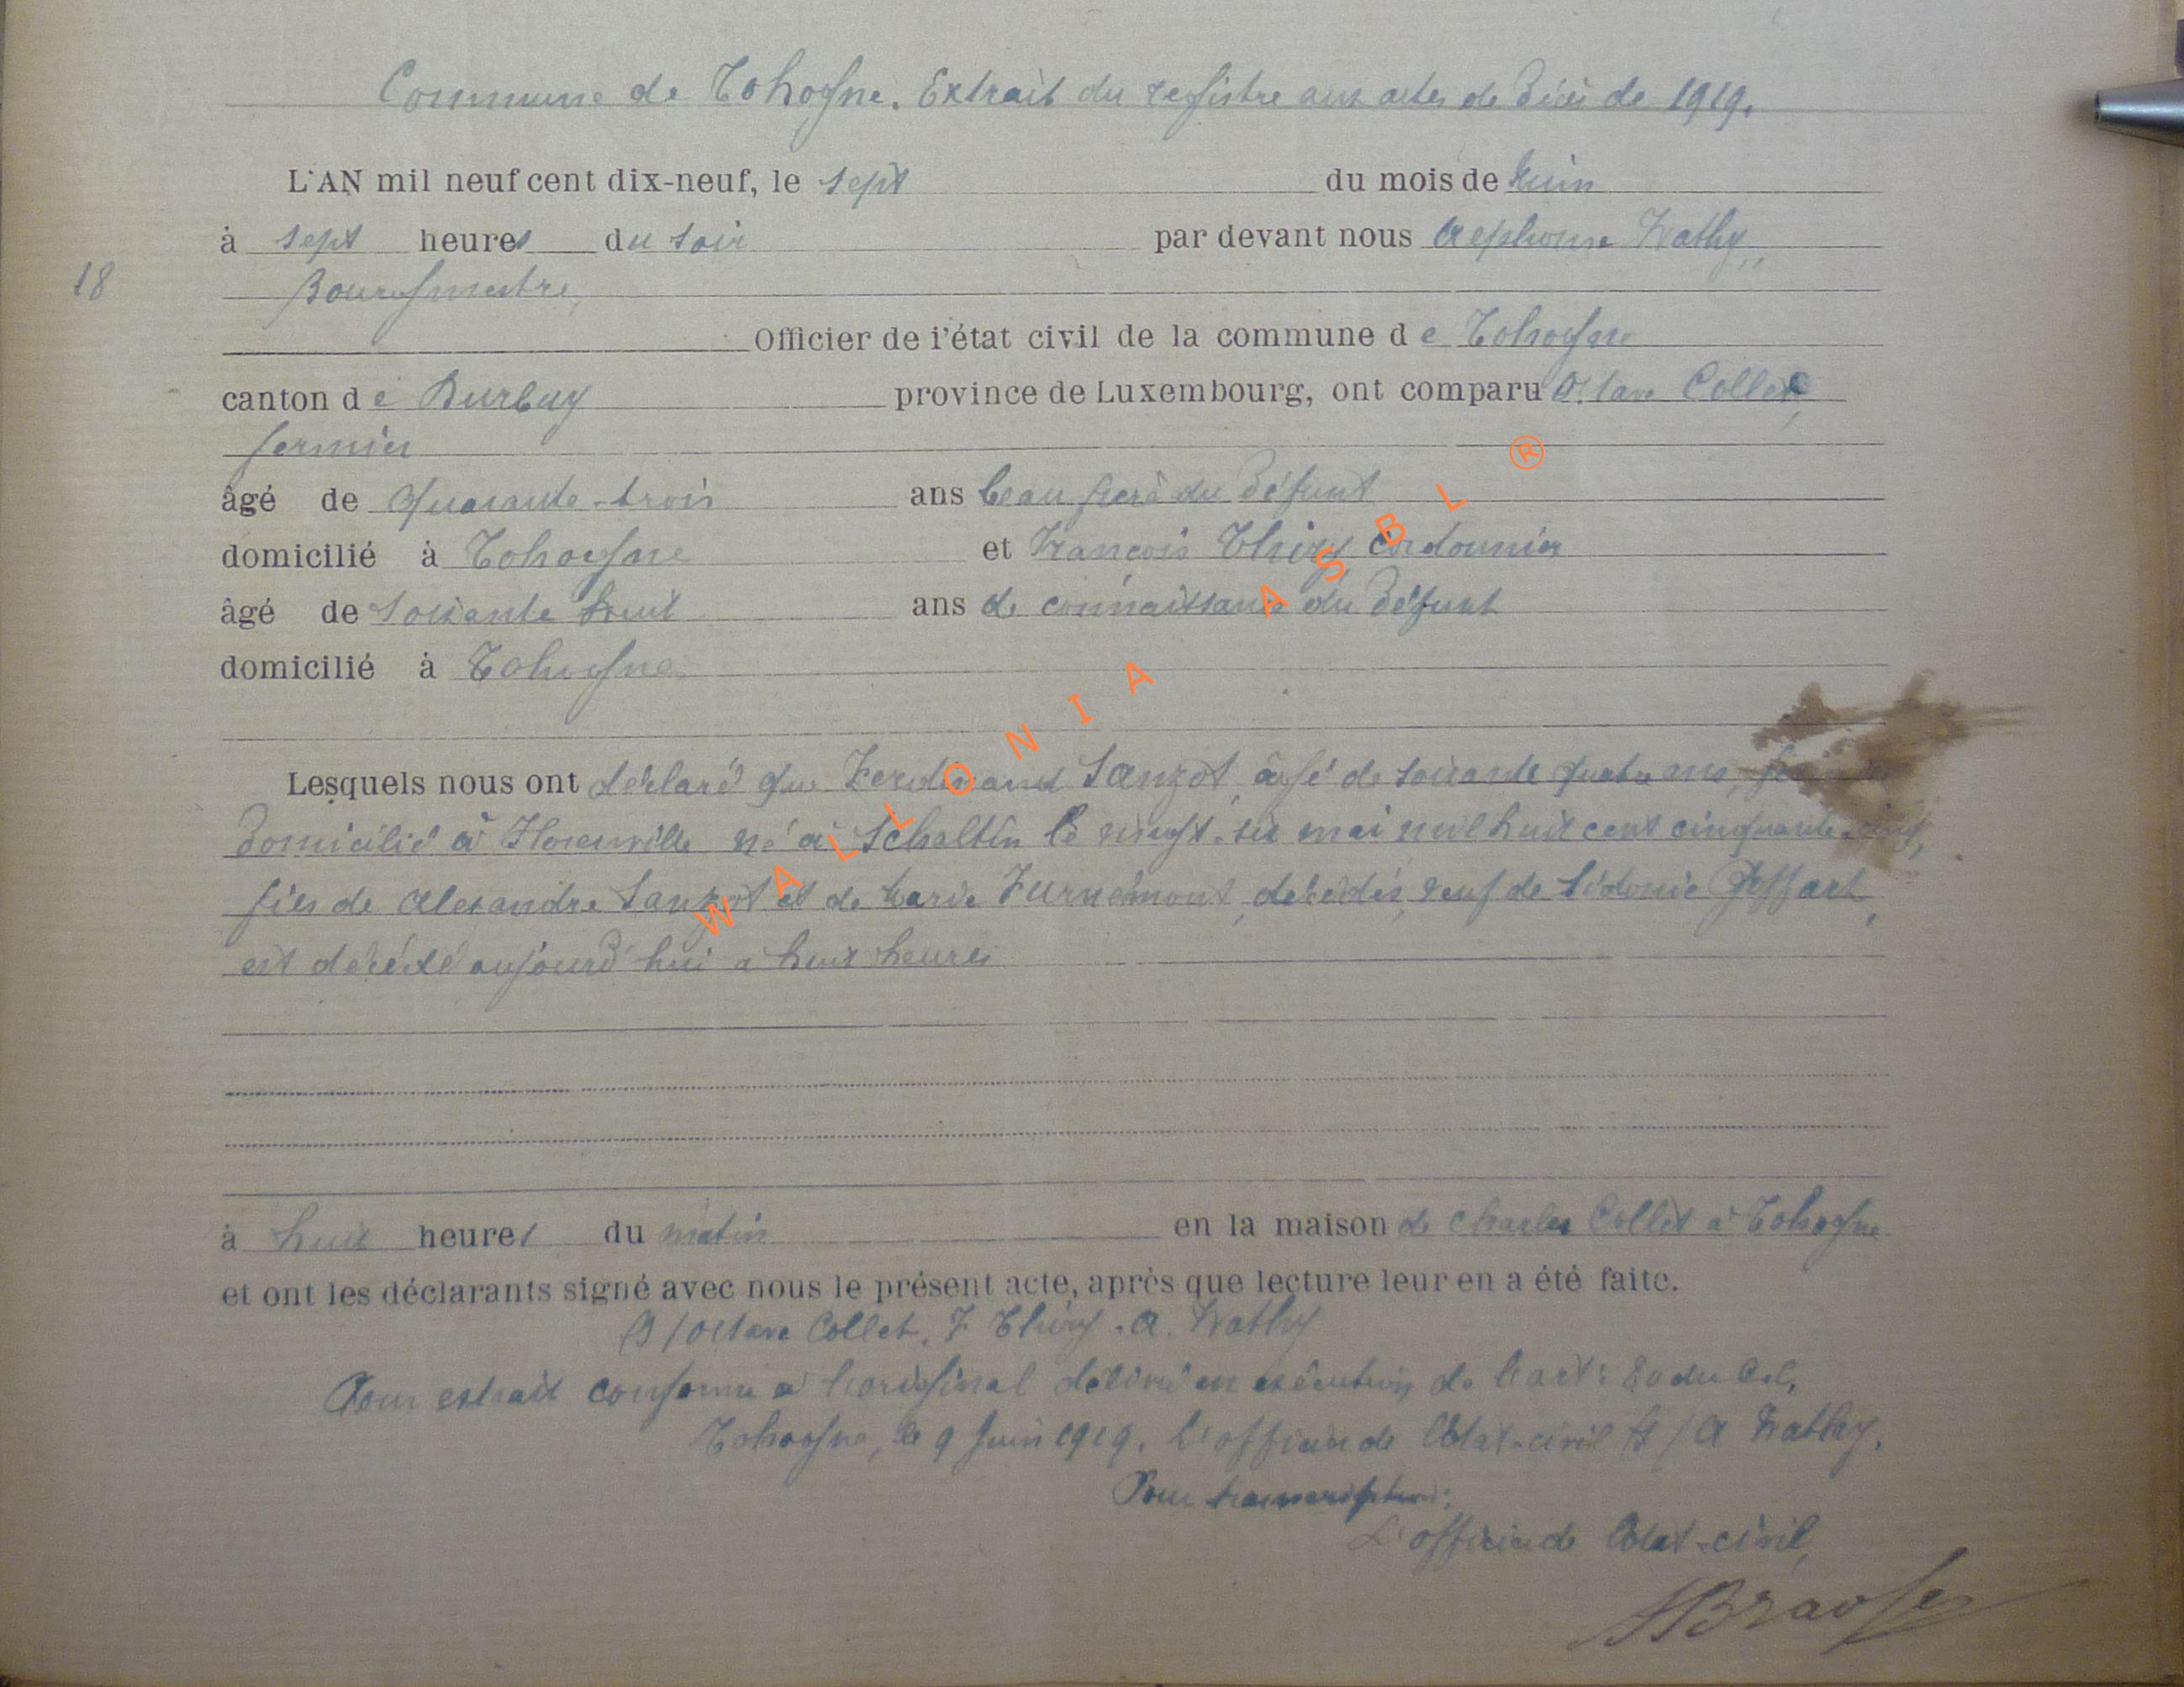 Commune de Tohogne. Extrait du registre aux actes de Décès de 1919.
L'AN mil neuf cent dix-neuf, le sept du mois de Juin
à sept heures du soir par devant nous Alphonse Wathy,
18
Bourgmestre,
Officier de l'état civil de la commune de Tohogne
canton de Durbuy province de Luxembourg, ont comparu Octave Collet,
fermier
âgé de quarante-trois ans beau frère du défunt
domicilié à Tohogne et François Thiry cordonnier
âgé de soixante huit ans de connaissance du défunt
domicilié à Tohogne
Lesquels nous ont déclaré que Ferdinand Sanzot, âgé de soixante quatre ans,
domicilié à né à Schaltin le vingt-six mai mil huit cent cinquante-cinq,
fils de Alexandre Sanzot et de Marie Furnémont, décédés, veuf de Sidonie Goffart,
est décédé aujourd'hui à huit heures
à huit heures du matin en la maison de Charles Collet à Tohogne
et ont les déclarants signé avec nous le présent acte, après que lecture leur en a été faite.
Octave Collet. F Thiry. A. Wathy
Pour extrait conforme à l'original délivré en exécution de l'art: 80 du C.C.
Tohogne, le 9 Juin 1919. L'officier de l'Etat-civil S/ A Wathy.
Pour transcription:
L'officier de l'Etat-civil,
WALLONIA ASBL ®